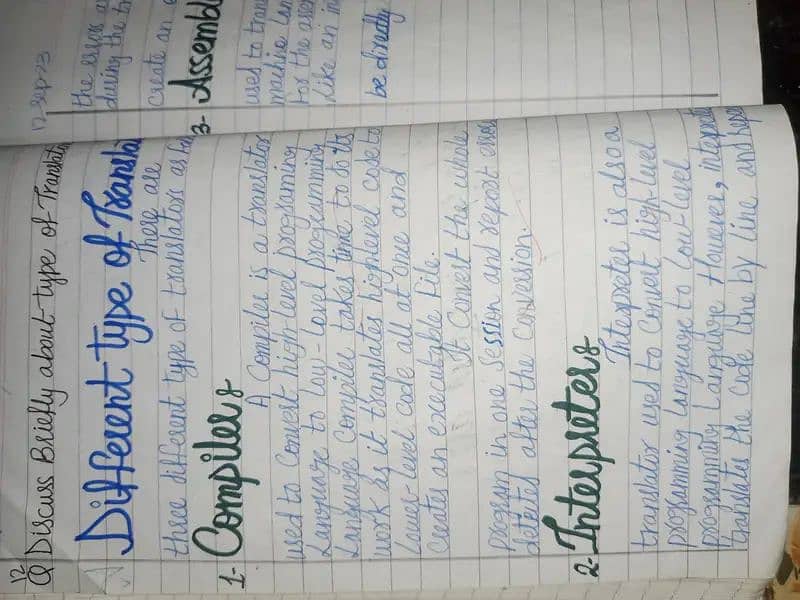 12
Q Discuss Briefly about type of Translato
Different type of Translat
There are
three different type of translators as
1- Compilers
A Compiler is a translator
used to Convert high-level programing
Language to low-level programming
Language Compiler takes time to do its
work as it translates high-level code to
lower-level code all at one and
Creates an executable file.
It Convert the whole
program in one session and report error
deteted after the Conversion.
2- Interpreters
Interpreter is also a
translator used to Convert high-level
programming language to low-level
programming Language However, interpret
translate the code line by line and
12 sep 23
the errors
during the
Create an
3- Assembl
used to trans
machine lan
For the
Like an in
be directly